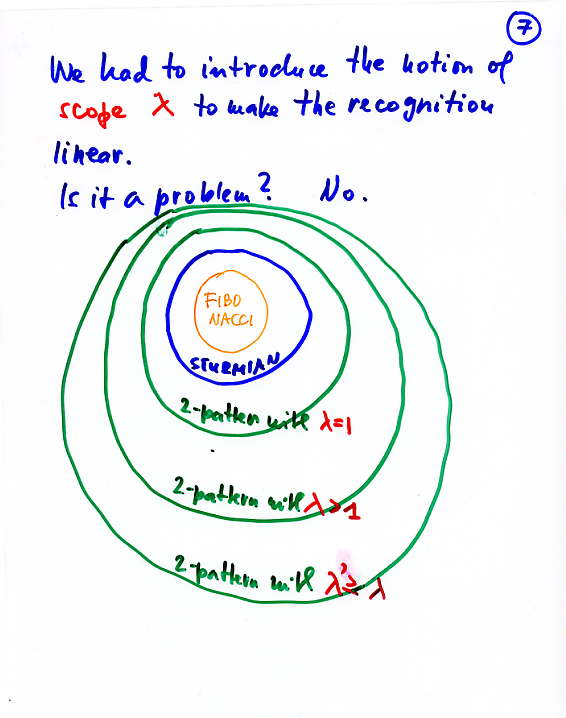 7
We had to introduce the notion of
scope λ to make the recognition
linear.
Is it a problem? No.
FIBO
NACCI
STURMIAN
2-pattern with λ=1
2-pattern with λ>1
2-pattern with λ'≥λ